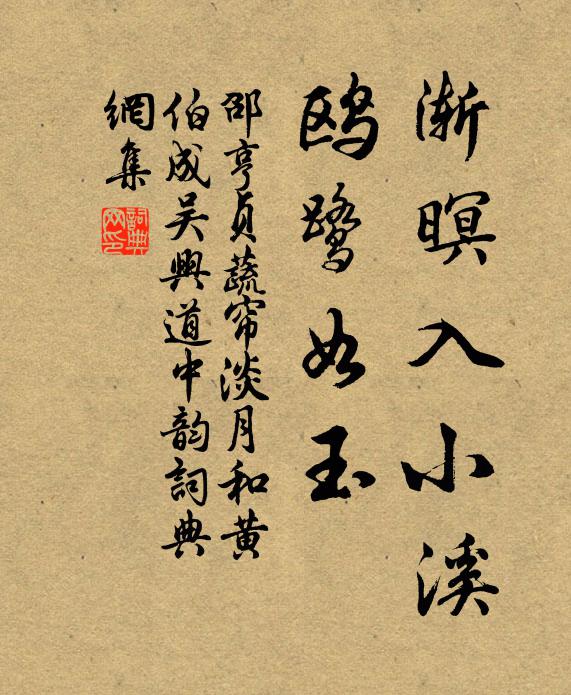 渐暝入小溪
鸥鹭如玉
邵亨贞蔬帘淡月和黄
伯成吴興道中韵詞典
網集
詞典网印